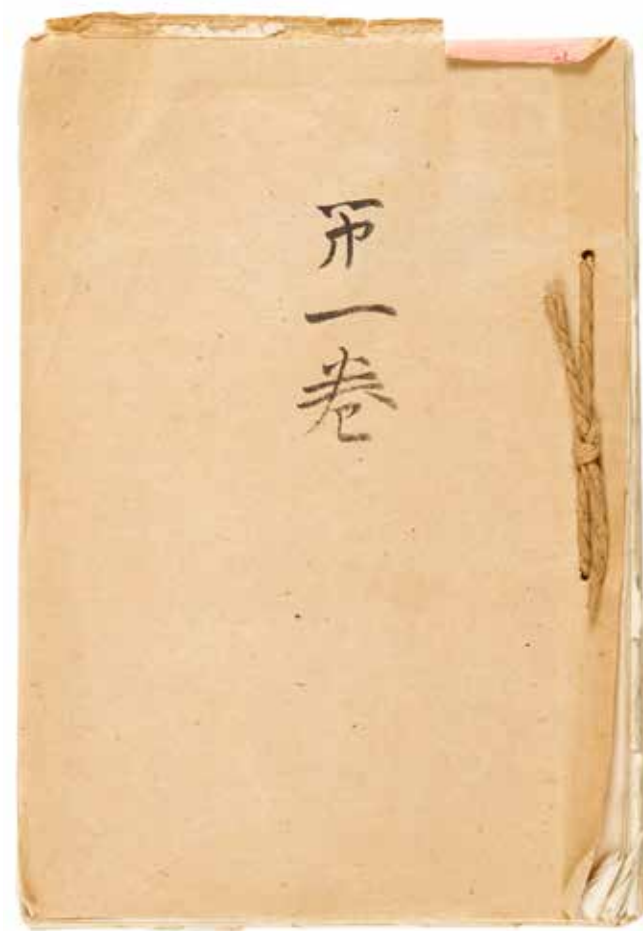 㐧一巻